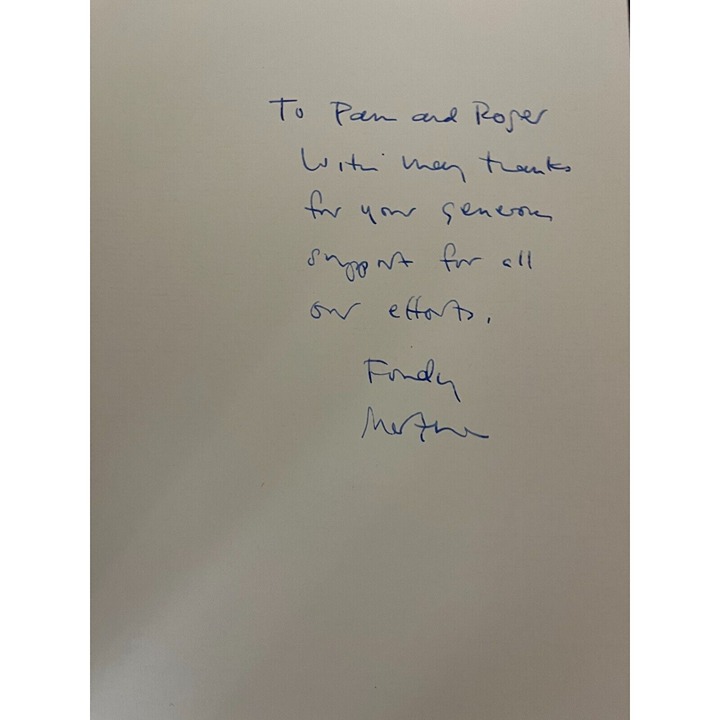 To Pam and Roger
With many thanks
for your generous
support for all
our efforts.
Fondly